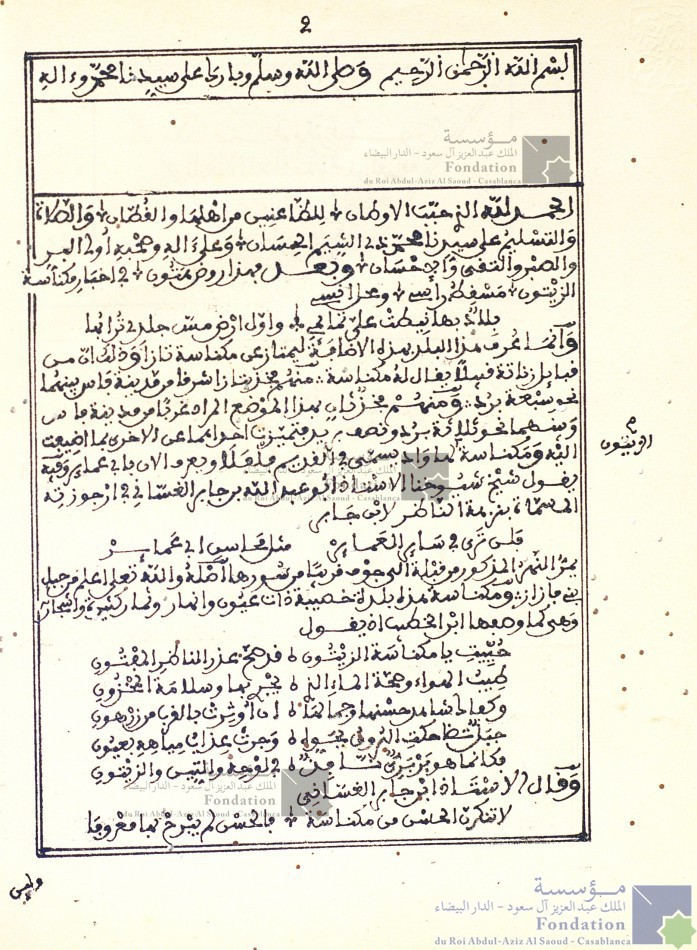 2
بسم الله الرحمن الرحيم وصلى الله وسلم وبارك على سيدنا محمد وءاله
مؤسسة
الملك عبد العزيز آل سعود - الدار البيضاء
Fondation
du Roi Abdul-Aziz Al Saoud - Casablanca
الحمد لله الذي حبب الاوطان للظاعنين من اهلها والقطان والصلاة
والتسليم على سيدنا محمد ذي الشيم الحسان وعلى ءاله وصحبه أولي البر
والصبر والتقى والاحسان وبعد بهذا روض هتون في اخبار مكناسة
الزيتون مسقط راسي ومحل انسي
بلاد بها نيطت علي تمايمي واول ارض مس جلدي ترابها
وانما عرف هذا البلد بهذه الاضافة ليمتاز عن مكناسة تازا وذلك ان من
قبايل زناتة قبيلا يقال له مكناسة منهم فخذ بتازا شرقا من مدينة فاس بينهما
نحو سبعة برد ومنهم فخذ كان بهذا الموضع المراد غربا من مدينة فاس
وبينهما نحو ثلاثة برد ونصف بريد فتميزت احداهما عن الاخرى بما اضيفت
اليه ومكناسة لها واد يسمى في القديم فلفلا ويعرف الان بابي عماير وفيه
يقول شيخ شيوخنا الاستاذ ابو عبد الله بن جابر الغساني في ارجوزته
المسماة بنزهة الناظر لابن جابر
فلن ترى في ساير العماير مثل محاسن ابي عماير
يمر النهر المذكور من قبلة الى جوف قريبا من سورها اصله والله تعلى اعلم من جبل
بني فازاز ومكناسة هذه بلدة خصيبة ذات عيون وانهار وثمار كثيرة واشجار
وهي كما وصفها ابن الخطيب اذ يقول
حييت يا مكناسة الزيتون قد صح عذر الناظر المفتون
طيب الهواء وصحة الماء الذي يجري بها وسلامة المخزون
وكفاك شاهد حسنها وجمالها ان أوثرت بالقرب من زرهون
جبل تضاحكت البروق بجوه وجرت عذاب مياهه بعيون
فكانما هو بربري نافذ في لوحه والتين والزيتون
وقال الاستاذ ابن جابر الغساني
لا تنكرن الحسن من مكناسة فالحسن لم يبرح بها معروفا
الزيتون
ولين
مؤسسة
الملك عبد العزيز آل سعود - الدار البيضاء
Fondation
du Roi Abdul-Aziz Al Saoud - Casablanca